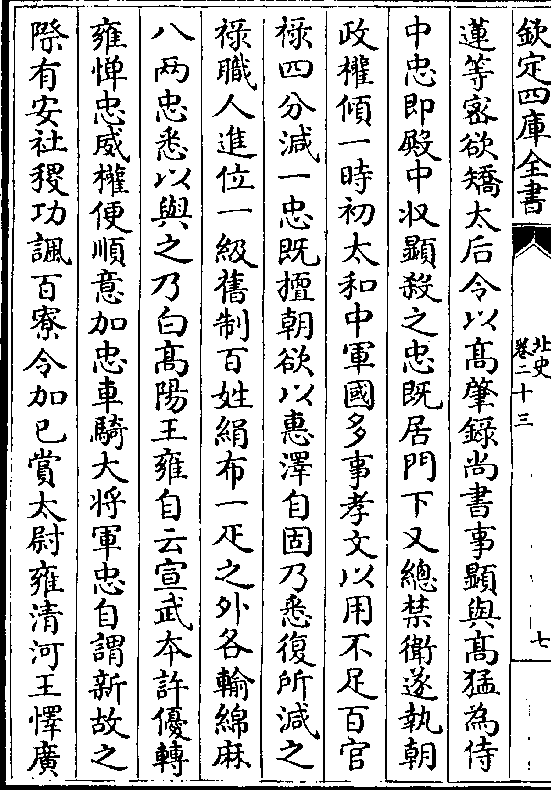 欽定四庫全書
北史
卷二十三
七
蓮等密欲矯太后令以髙肇錄尚書事顯與髙猛為侍
中忠即殿中収顯殺之忠既居門下又總禁衛遂執朝
政權傾一時初太和中軍國多事孝文以用不足百官
祿四分減一忠既擅朝欲以惠澤自固乃悉復所減之
祿職人進位一級舊制百姓絹布一疋之外各輸綿麻
八两忠悉以與之乃白髙陽王雍自云宣武本許優轉
雍憚忠威權便順意加忠車騎大将軍忠自謂新故之
際有安社稷功諷百寮令加已賞太尉雍清河王懌廣